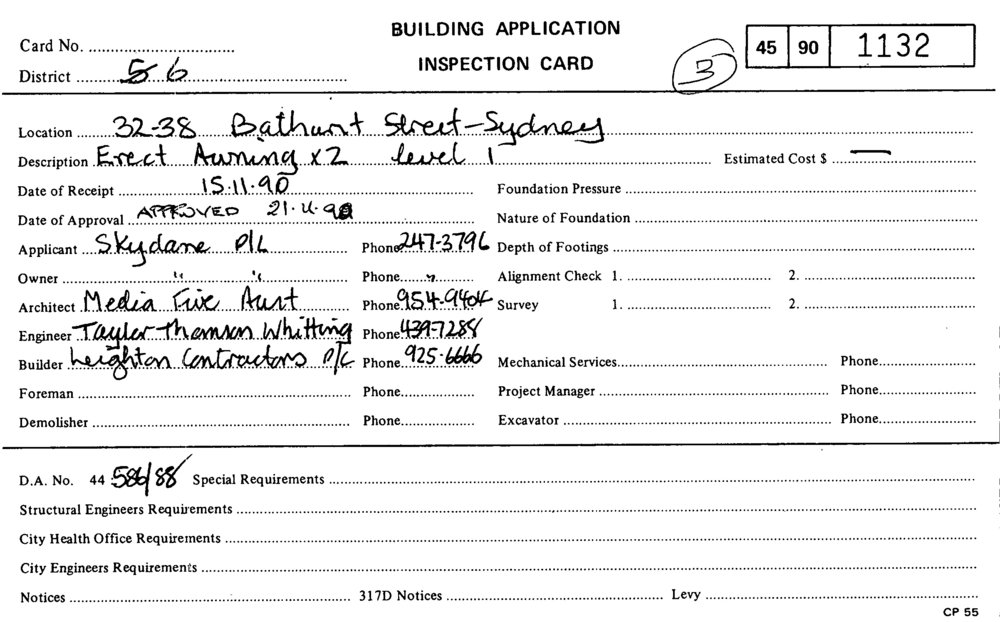 BUILDING APPLICATION
Card No.
45 90 1132
INSPECTION CARD
3
District 56
Location 32-38 Bathurst Street-Sydney
Description Erect Awning x2 level 1 Estimated Cost $ —
Date of Receipt 15.11.90 Foundation Pressure
Date of Approval APPROVED 21.11.90 Nature of Foundation
Applicant Skydane P/L Phone 247-3796 Depth of Footings
Owner " " Phone " Alignment Check 1. 2.
Architect Media Five Aust Phone 954-9404 Survey 1. 2.
Engineer Taylor Thomson Whitting Phone 439-7288
Builder Leighton Contractors P/L Phone 925-6666 Mechanical Services Phone
Foreman Phone Project Manager Phone
Demolisher Phone Excavator Phone
D.A. No. 44 586/88 Special Requirements
Structural Engineers Requirements
City Health Office Requirements
City Engineers Requirements
Notices 317D Notices Levy
CP 55